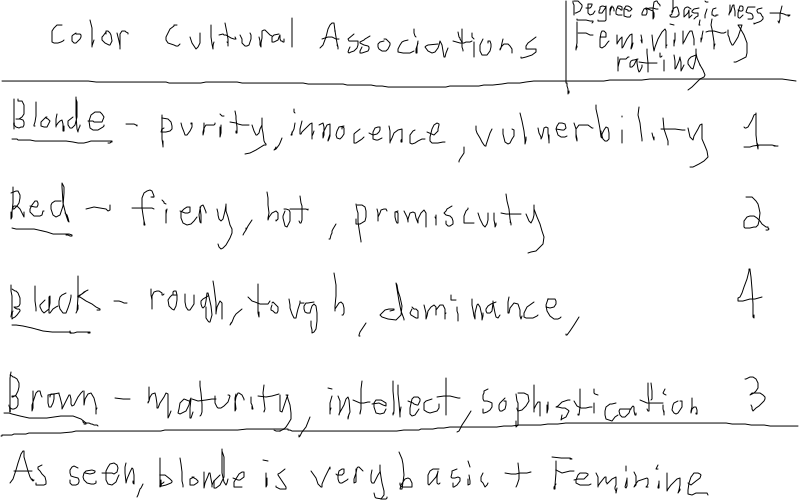 Color Cultural Associations
Degree of basic ness +
Femininity
rating
Blonde - purity, innocence, vulnerbility 1
Red - fiery, hot, promiscuity 2
Black - rough, tough, dominance, 4
Brown - maturity, intellect, sophistication 3
As seen, blonde is very basic + Feminine